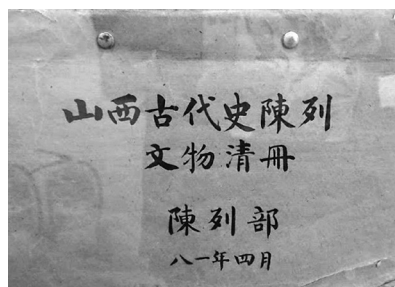 山西古代史陳列
文物清冊
陳列部
八一年四月